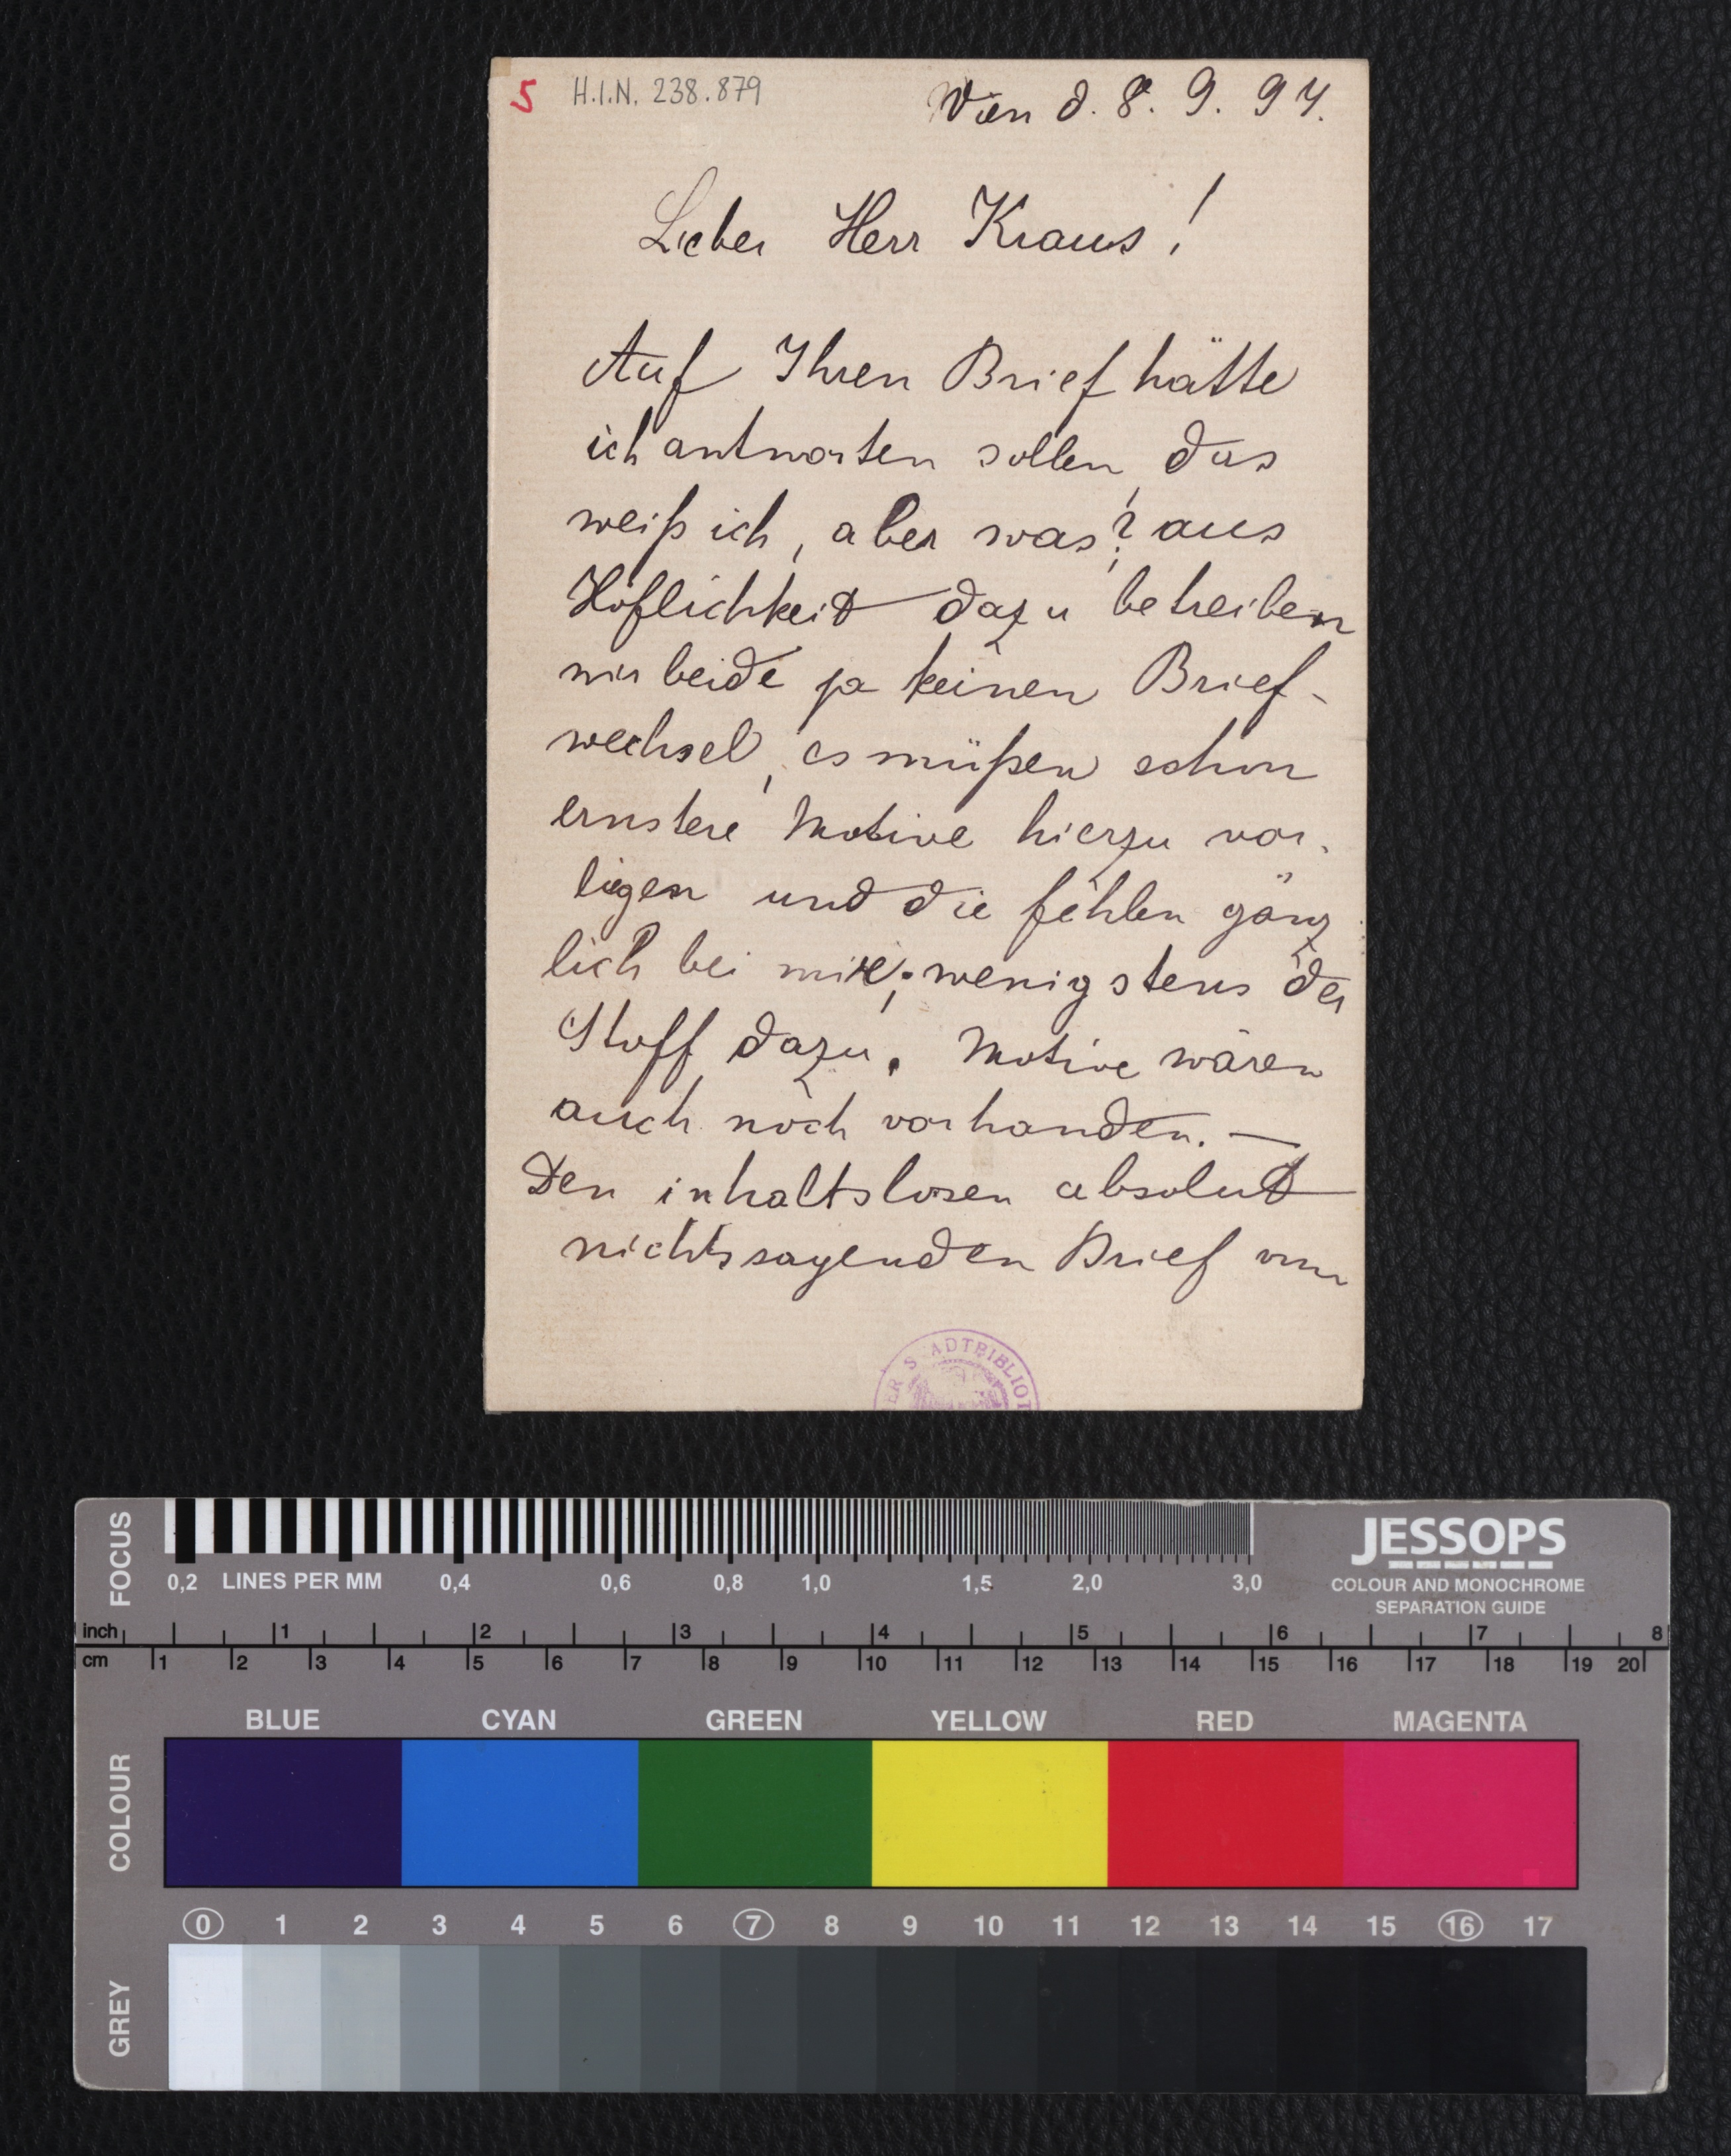 5 H.I.N. 238.879
Wien d. 8. 9. 94.
Lieber Herr Kraus!
Auf Ihren Brief hätte
ich antworten sollen, das
weiß ich, aber was? aus
Höflichkeit dazu betreiben
wir beide ja keinen Brief-
wechsel, es müßen schon
ernstere Motive hierzu vor-
liegen und die fehlen gänz
lich bei mir; wenigstens der
Stoff dazu. Motive wären
auch noch vorhanden. —
Den inhaltslosen absolut
nichtssagenden Brief vom
ER STADTBIBLIOT
FOCUS
0,2 LINES PER MM 0,4 0,6 0,8 1,0 1,5 2,0 3,0
JESSOPS
COLOUR AND MONOCHROME
SEPARATION GUIDE
inch 1 2 3 4 5 6 7 8
cm 1 2 3 4 5 6 7 8 9 10 11 12 13 14 15 16 17 18 19 20
COLOUR
BLUE CYAN GREEN YELLOW RED MAGENTA
0 1 2 3 4 5 6 7 8 9 10 11 12 13 14 15 16 17
GREY